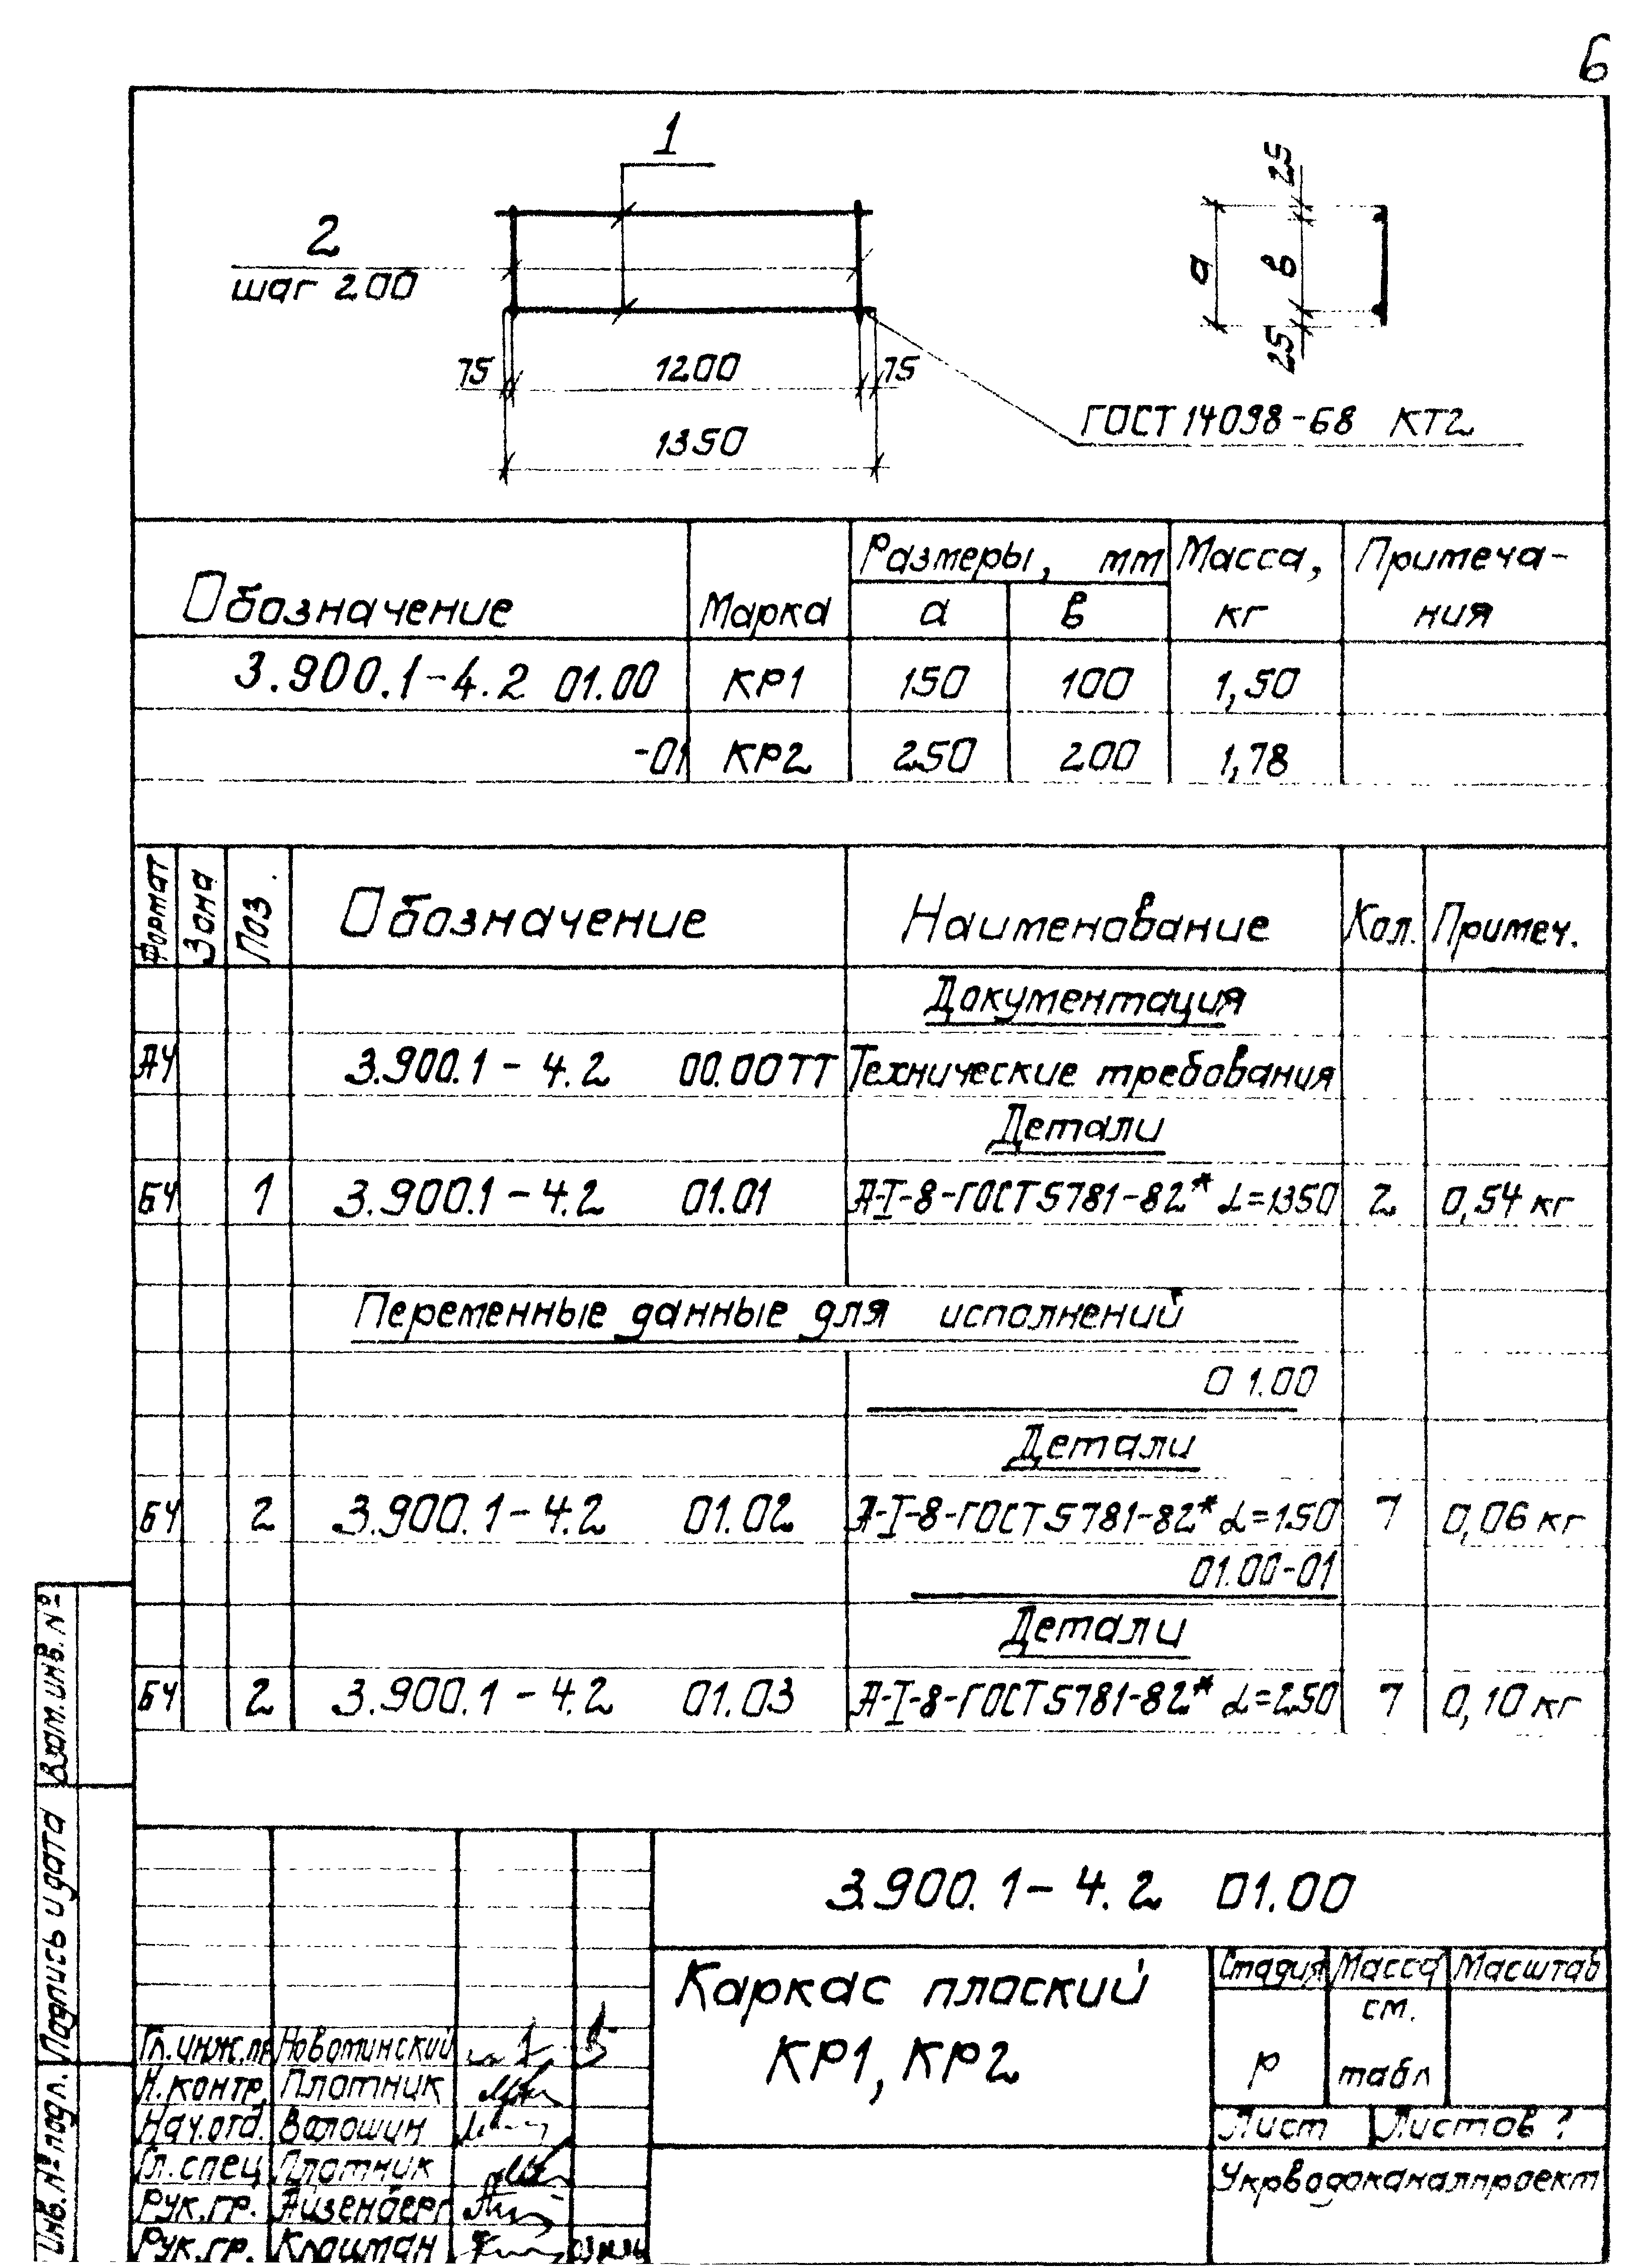 6
1
2
шаг 200
75 1200 75
1350
25
а в
25
ГОСТ 14098-68 КТ2
Обозначение Марка Размеры, мм Масса, кг Примеча-ния
а в
3.900.1-4.2 01.00 КР1 150 100 1,50
-01 КР2 250 200 1,78
Формат Зона Поз. Обозначение Наименование Кол. Примеч.
Документация
А4 3.900.1-4.2 00.00ТТ Технические требования
Детали
БЧ 1 3.900.1-4.2 01.01 А-I-8-ГОСТ 5781-82* L=1350 2 0,54 кг
Переменные данные для исполнений
01.00
Детали
БЧ 2 3.900.1-4.2 01.02 А-I-8-ГОСТ 5781-82* L=150 7 0,06 кг
01.00-01
Детали
БЧ 2 3.900.1-4.2 01.03 А-I-8-ГОСТ 5781-82* L=250 7 0,10 кг
Взам.инв.№
Подпись и дата
Инв.№ подл.
3.900.1-4.2 01.00
Каркас плоский
КР1, КР2
Стадия Масса Масштаб
Р см. табл
Лист Листов
Укрводоканалпроект
Гл.инж.пр Новоминский
Н.контр. Плотник
Нач.отд. Волошин
Гл.спец Плотник
Рук.гр. Айзенберг
Рук.гр.